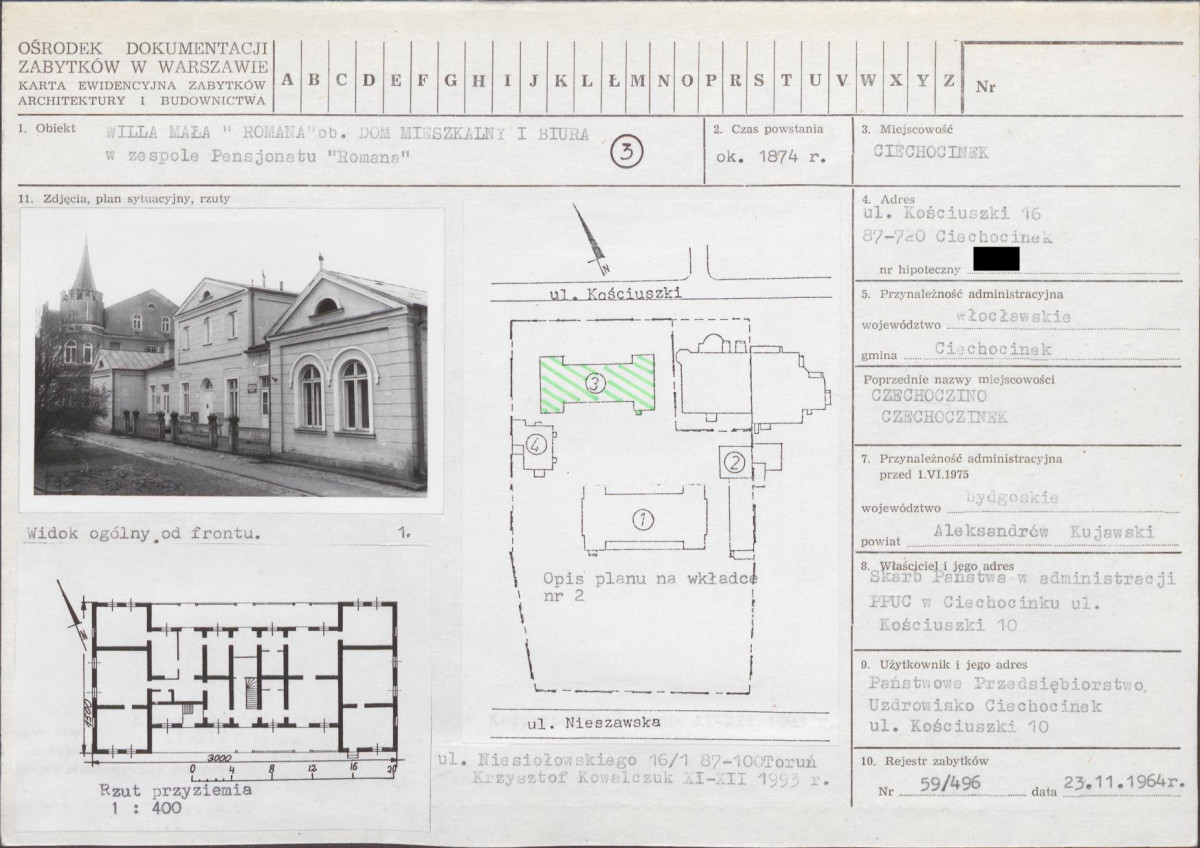 OŚRODEK DOKUMENTACJI
ZABYTKÓW W WARSZAWIE
KARTA EWIDENCYJNA ZABYTKÓW
ARCHITEKTURY I BUDOWNICTWA
A B C D E F G H I J K L Ł M N O P R S T U V W X Y Z
Nr
1. Obiekt WILLA MAŁA " ROMANA" ob. DOM MIESZKALNY I BIURA
w zespole Pensjonatu "Romana"
3
2. Czas powstania
ok. 1874 r.
3. Miejscowość
CIECHOCINEK
11. Zdjęcia, plan sytuacyjny, rzuty
Widok ogólny od frontu. 1.
N
3000
0 4 8 12 16 20
Rzut przyziemia
1 : 400
N
ul. Kościuszki
3
4
2
1
Opis planu na wkładce
nr 2
ul. Nieszawska
ul. Niesiołowskiego 16/1 87-100Toruń
Krzysztof Kowalczuk XI-XII 1993 r.
4. Adres
ul. Kościuszki 16
87-720 Ciechocinek
nr hipoteczny
5. Przynależność administracyjna
województwo włocławskie
gmina Ciechocinek
Poprzednie nazwy miejscowości
CZECHOCZINO
CZECHOCZINEK
7. Przynależność administracyjna
przed 1.VI.1975
województwo bydgoskie
powiat Aleksandrów Kujawski
8. Właściciel i jego adres
Skarb Państwa w administracji
PPUC w Ciechocinku ul.
Kościuszki 10
9. Użytkownik i jego adres
Państwowe Przedsiębiorstwo
Uzdrowisko Ciechocinek
ul. Kościuszki 10
10. Rejestr zabytków
Nr 59/496 data 23.11.1964r.